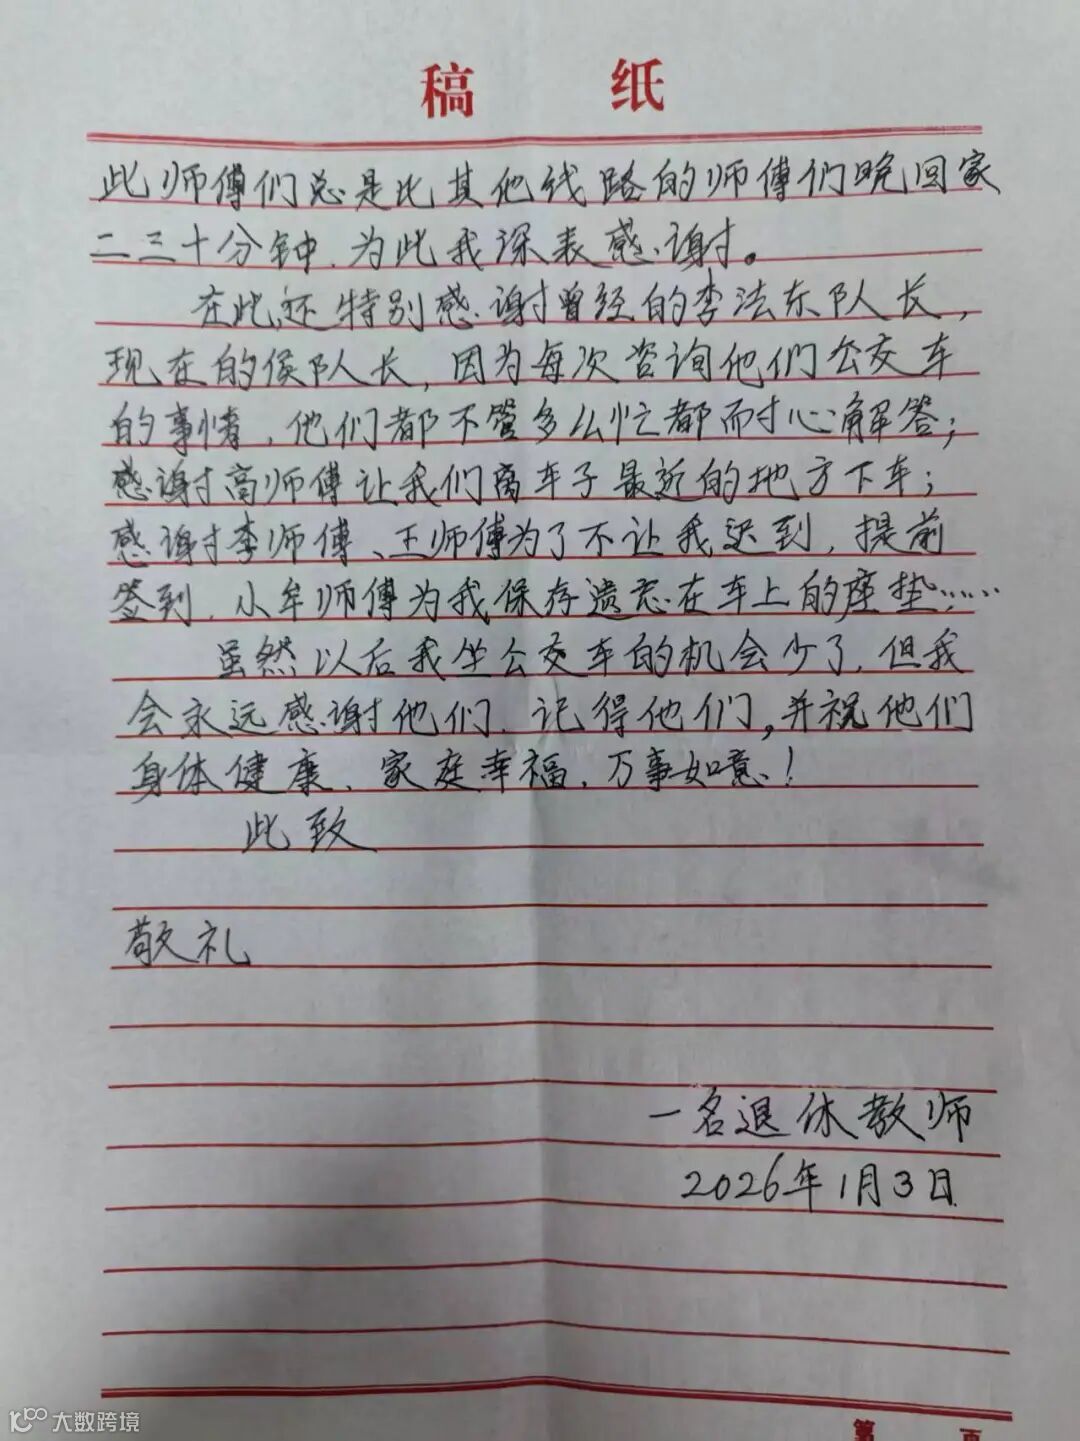 稿 纸
此师傅们总是比其他线路的师傅们晚回家
二三十分钟、为此我深表感谢。
在此还特别感谢曾经的李法东队长，
现在的侯队长，因为每次咨询他们公交车
的事情，他们都不管多么忙都耐心解答；
感谢高师傅让我们离车子最近的地方下车；
感谢李师傅、王师傅为了不让我迟到，提前
签到，小牟师傅为我保存遗忘在车上的座垫……
虽然以后我坐公交车的机会少了，但我
会永远感谢他们、记得他们，并祝他们
身体健康、家庭幸福，万事如意！
此致
敬礼
一名退休教师
2026年1月3日
第 页
大数跨境